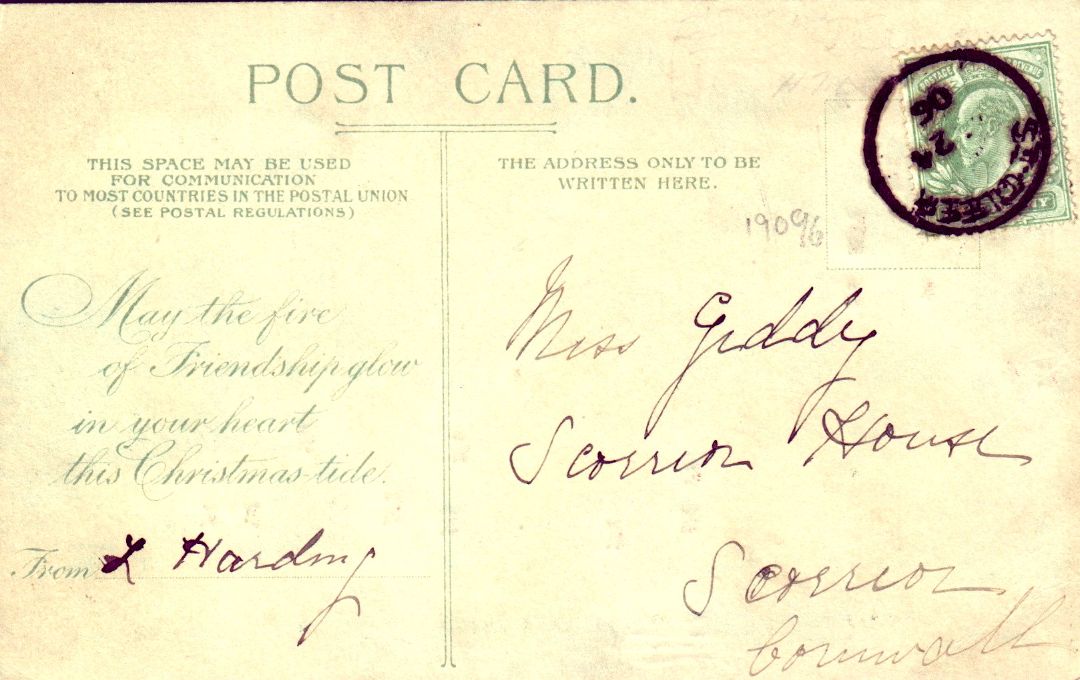 POST CARD.
THIS SPACE MAY BE USED
FOR COMMUNICATION
TO MOST COUNTRIES IN THE POSTAL UNION
(SEE POSTAL REGULATIONS)
May the fire
of Friendship glow
in your heart
this Christmas-tide.
From L Harding
THE ADDRESS ONLY TO BE
WRITTEN HERE.
19096
POSTAGE
REVENUE
24
06
Miss Giddy
Scorrier House
Scorrier
Cornwall